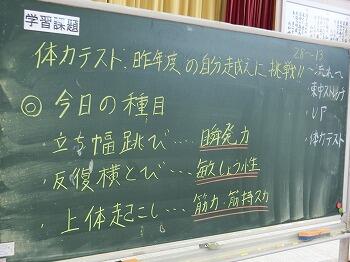 学習課題
体力テスト.昨年度の自分越えに挑戦!!
◎今日の種目
・立ち幅跳び…瞬発力
・反復横とび…敏しょう性
・上体起こし…筋力、筋持久力
〜流れ〜
・UP
・体力テスト